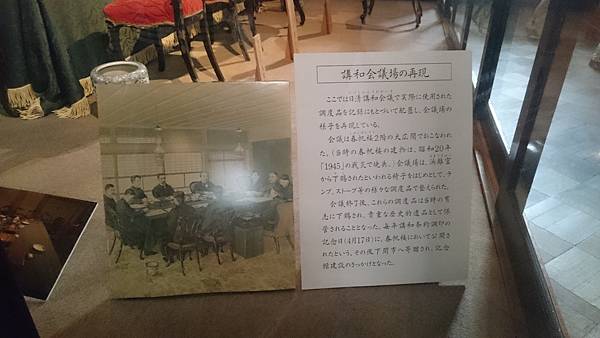 講和会議場の再現
ここでは日清講和会議で実際に使用された
調度品を記録にもとづいて配置し、会議場の
様子を再現している。
会議は春帆楼2階の大広間でおこなわれ
た。(当時の春帆楼の建物は、昭和20年
「1945」の戦災で焼失。)会議場は、浜離宮
から下賜されたといわれる椅子をはじめとして、ラ
ンプ、ストーブ等の様々な調度品で整えられた。
会議終了後、これらの調度品は当時の県
令に下賜され、貴重な歴史的遺品として保
管されることとなった。毎年講和条約調印の
記念日(4月17日)に、春帆楼において公開さ
れたという。その後下関市へ寄贈され、記念
館建設のきっかけとなった。